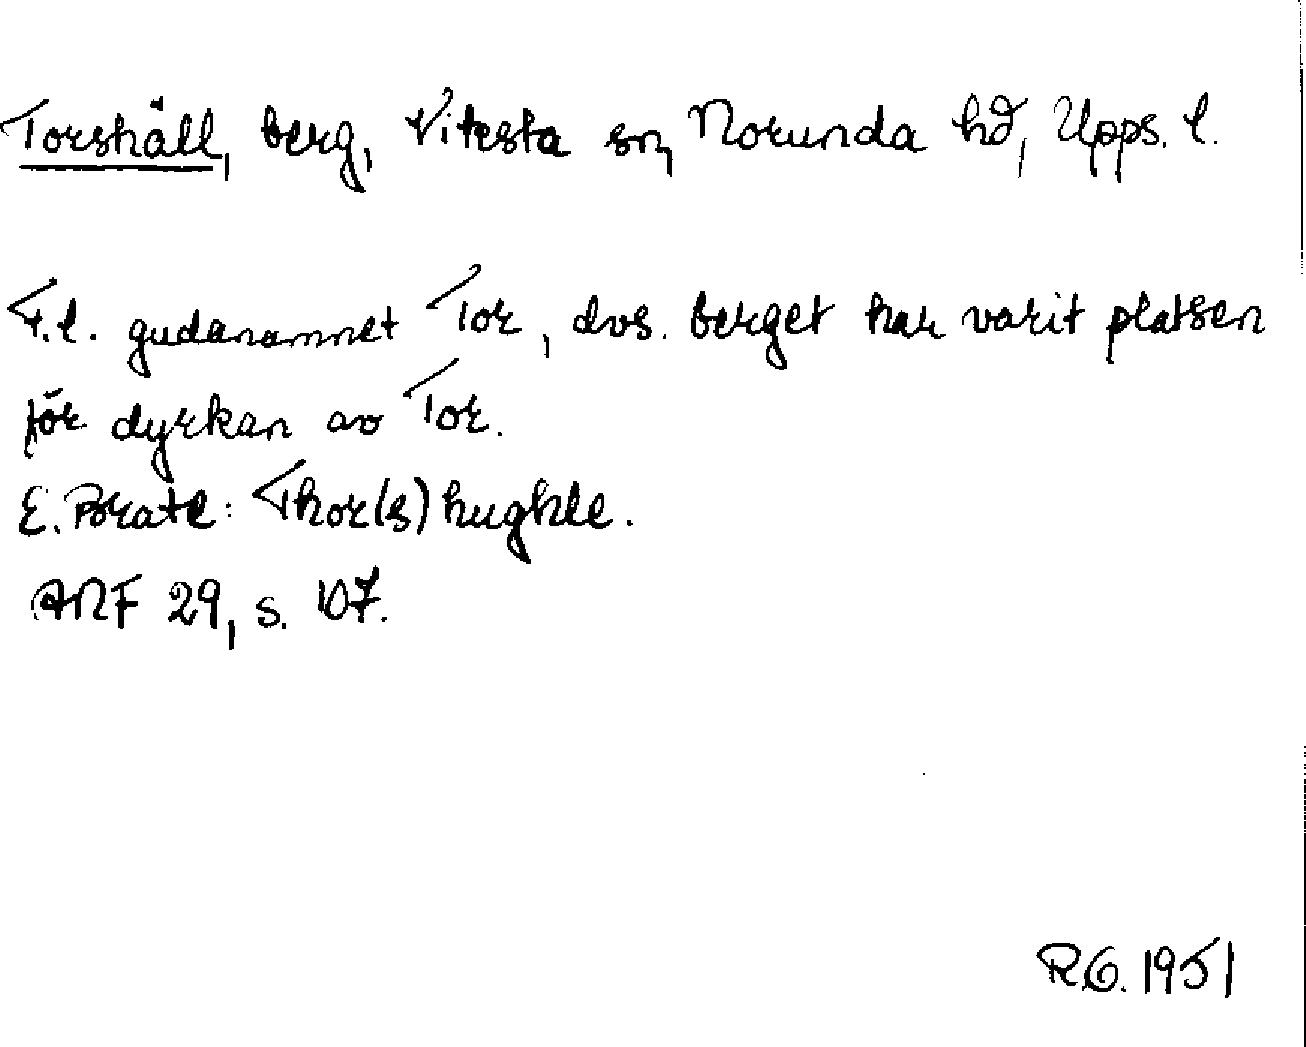 Torshäll, berg, Viksta sn, Norunda hd, Upps. l.
F.l. gudanamnet Tor, dvs. berget har varit platsen
för dyrkan av Tor.
E. Brate: Thor(s)hughle.
ANF 29, s. 107.
R.G. 1951